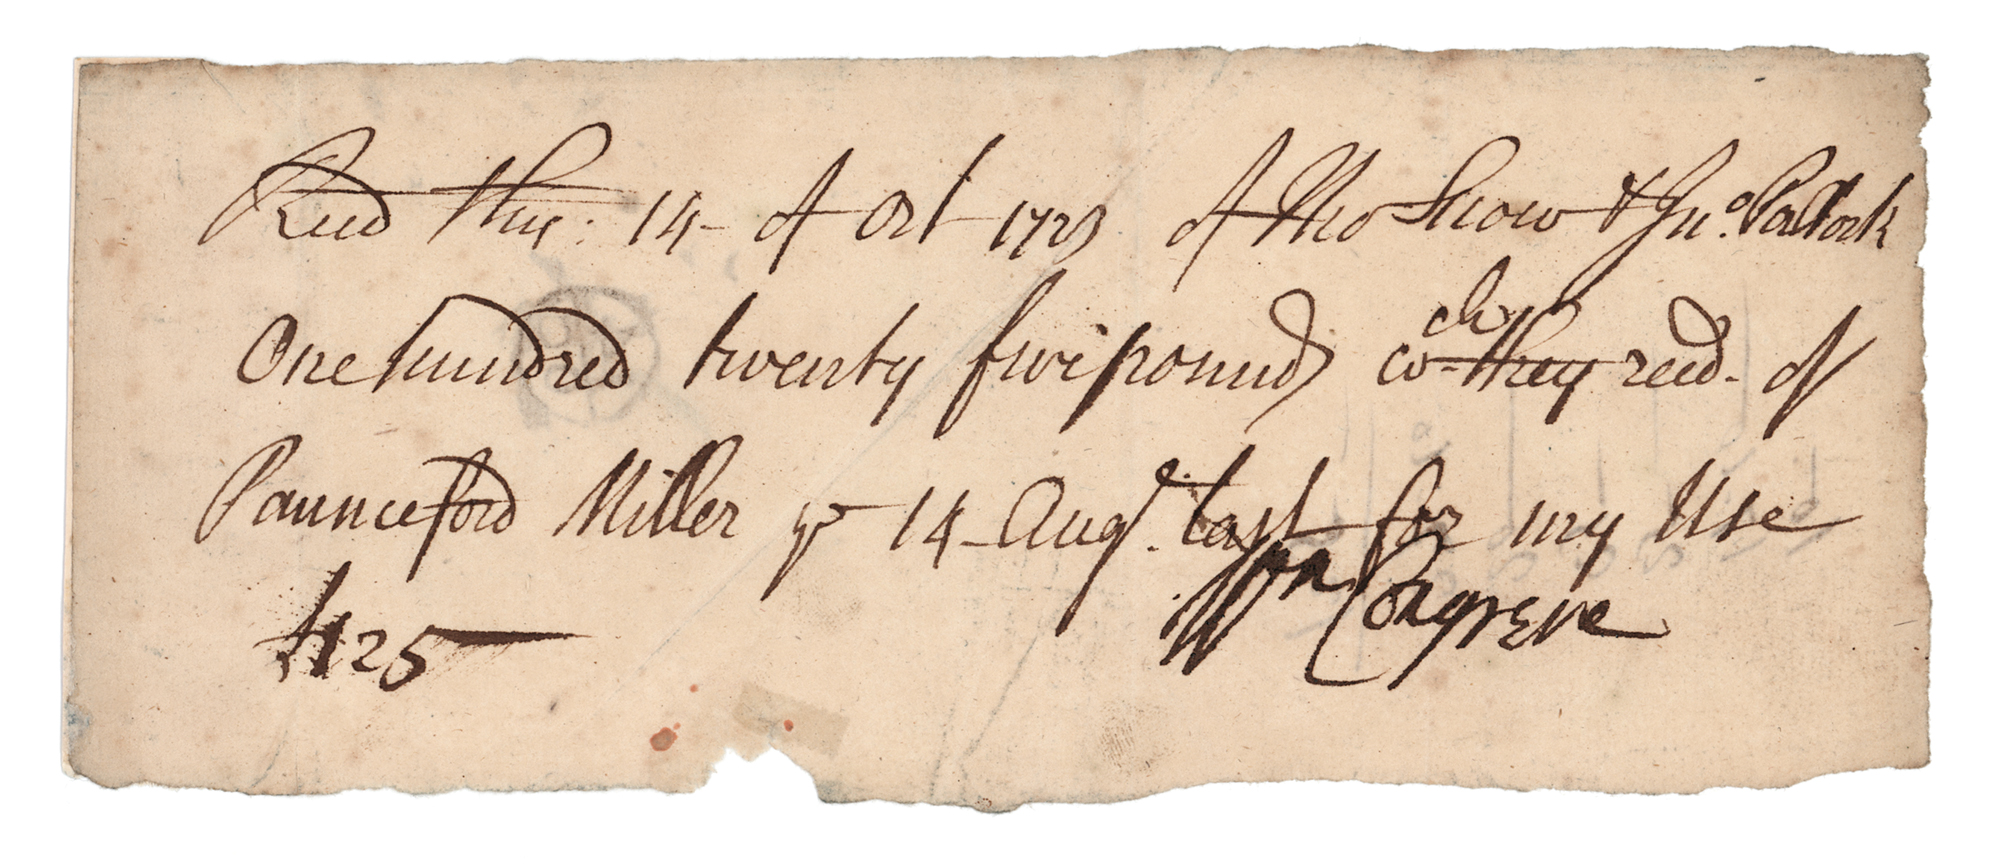 Recd this: 14 - of Oct 1723 of Tho Snow & Jno. Paltock
One hundred twenty five pounds wch they recd. of
Paunceford Miller ye 14 - Augt. last for my Use
£125 Wm Congreve